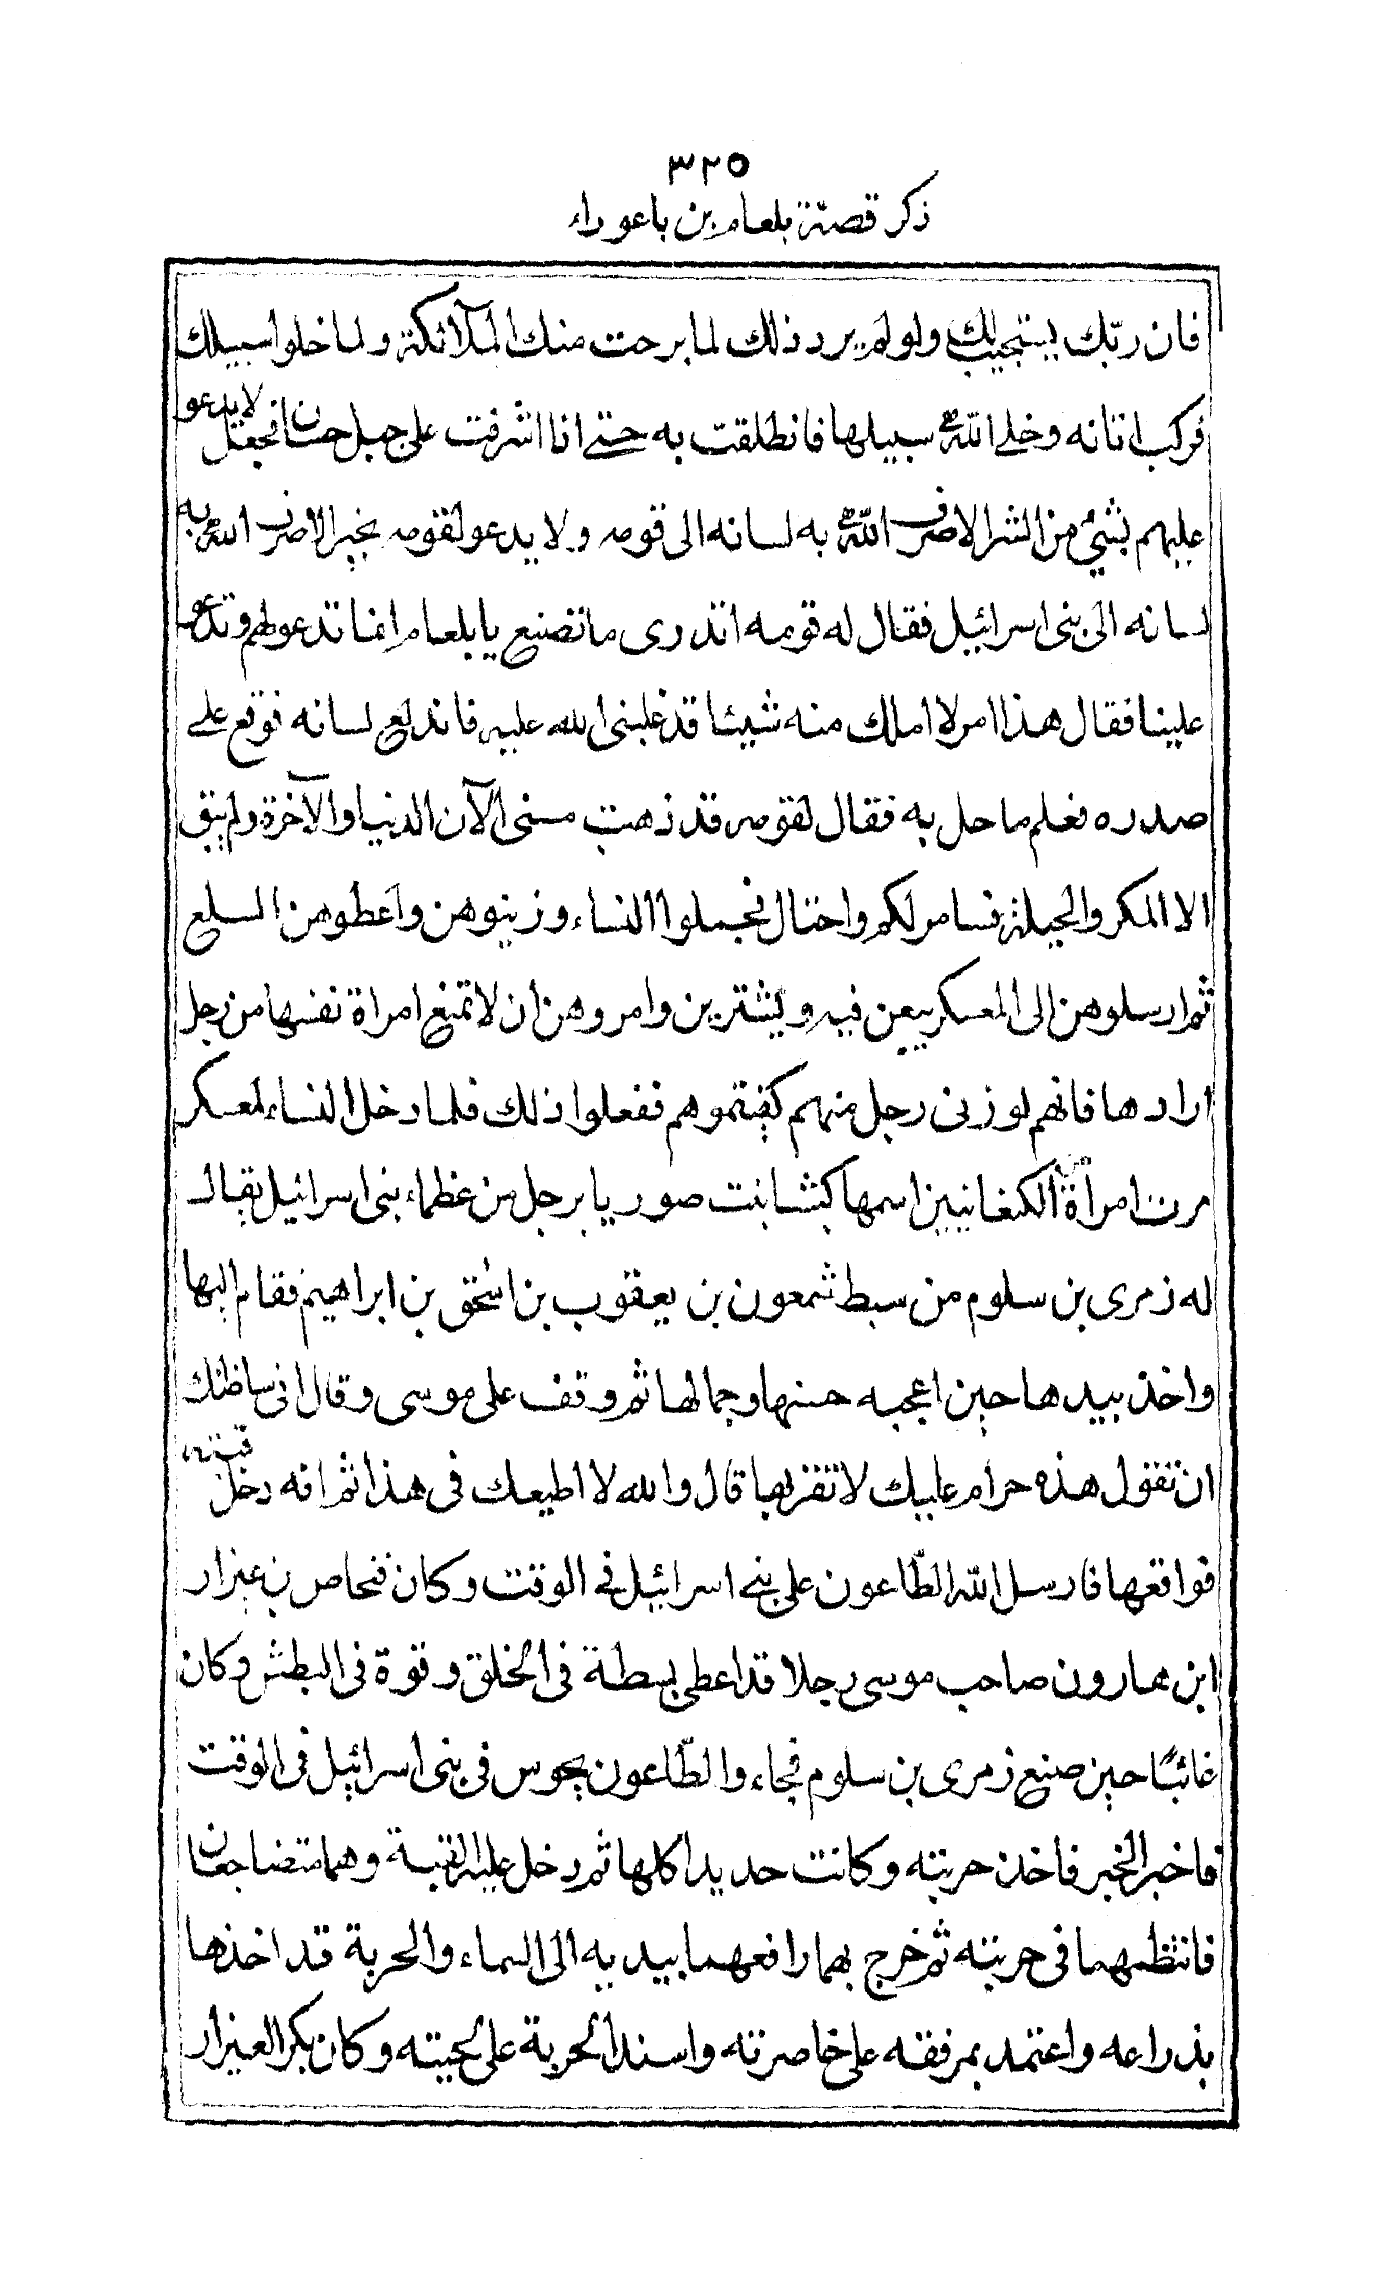 ٣٢٥
ذكر قصّة بلعام بن باعوراء
فان ربّك يستجيب لك ولو لم يرد ذلك لما برحت منك الملآئكة ولما خلوا سبيلك
فركب اتانه وخلى اللهُ سبيلها فانطلقت به حتى اذا اشرفت على جبل حسان فجعل لا يدعو
عليهم بشئ من الشر الا صرف اللهُ به لسانه الى قومه ولا يدعو لقومه بخير الا صرف الله به
لسانه الى بنى اسرائيل فقال له قومه اتدرى ما تصنع يا بلعام انما تدعو لهم وتدعو
علينا فقال هذا امر لا املك منه شيئا قد غلبنى الله عليه فاندلع لسانه فوقع على
صدره فعلم ما حل به فقال لقومه قد ذهبت منى الآن الدنيا والآخرة ولم يبق
الا المكر والحيلة فسامر لكم واحتال فجملوا النساء وزينوهن واعطوهن السلع
ثم ارسلوهن الى المعسكر يبعن فيه ويشترين وامروهن ان لا تمنع امراة نفسها من رجل
ارادها فانهم لو زنى رجل منهم كفيتموهم ففعلوا ذلك فلما دخل النساء لمعسكر
مرت امرأة الكنعانيين اسمها كشا بنت صوريا برجل من عظماء بنى اسرائيل يقال
له زمرى بن سلوم من سبط شمعون بن يعقوب بن اسحٰق بن ابراهيم فقام اليها
واخذ بيدها حين اعجبه حسنها وجمالها ثم وقف على موسى وقال انى ساظنك
ان تقول هذه حرام عليك لا تقربها قال والله لا اطيعك فى هذا ثم انه دخل قبته
فواقعها فارسل الله الطّاعون على بنى اسرائيل فى الوقت وكان فنحاص بن عيزار
ابن هارون صاحب موسى رجلا قد اعطى بسطة فى الخلق وقوة فى البطش وكان
غائبًا حين صنع زمرى بن سلوم فجاء والطّاعون يجوس فى بنى اسرائيل فى الوقت
فاخبر الخبر فاخذ حربته وكانت حديدا كلها ثم دخل عليه القبة وهما متضاجعان
فانتظمهما فى حربته ثم خرج بهما رافعهما بيديه الى السماء والحربة قد اخذها
بذراعه واعتمد بمرفقه على خاصرته واسند الحربة على لحيته وكان بكر العيزار